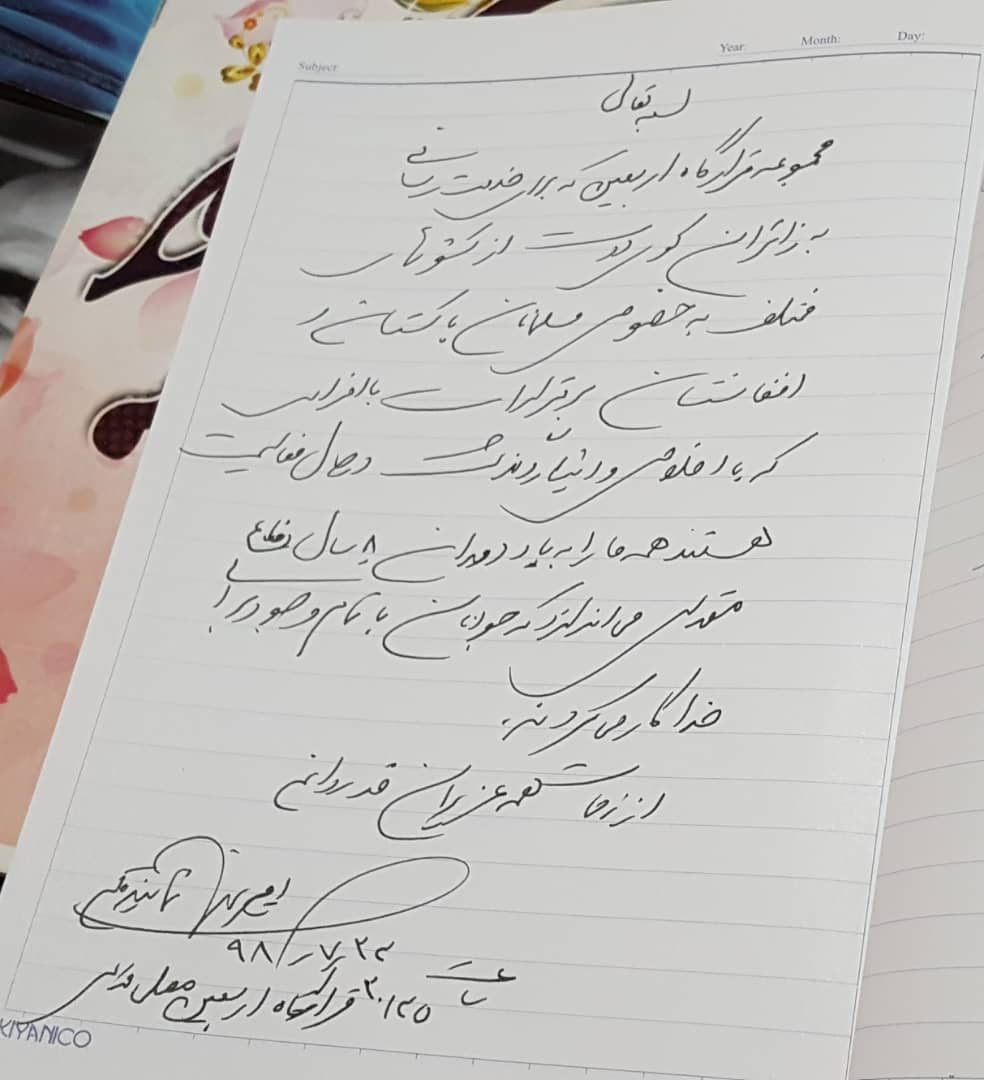 Subject: Year: Month: Day:
بسمه تعالی
مجموعه قرارگاه اربعین که برای خدمت رسانی
به زائران کوی دوست از کشورهای
مختلف به خصوص مسلمانان پاکستان و
افغانستان برقرار است با افرادی
که با اخلاص و ایثار در حال فعالیت
هستند همه ما را به یاد دوران ۸ سال دفاع
مقدس می اندازد که جوانان با تمام وجود برای
خدا کار می کردند.
از زحمات همه عزیزان قدردانم
۹۸/۷/۲۳
ساعت
قرارگاه اربعین
KIYANICO